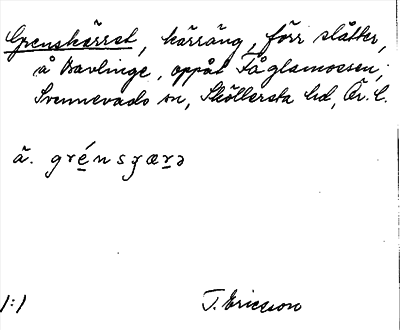 Grenskärret, kärräng, förr slåtter,
å Bavlinge, oppåt Fåglamossen,
Svennevads sn, Sköllersta hd, Ör. l.
ä. grénsʒærə
1:1 T. Ericsson